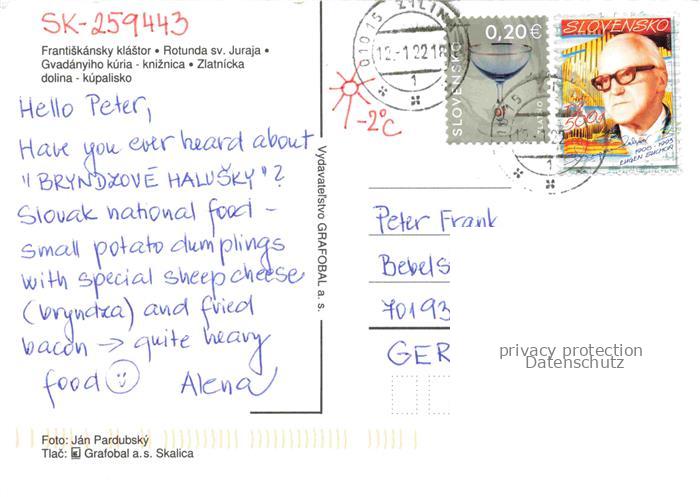 SK-259443
Františkánsky kláštor • Rotunda sv. Juraja •
Gvadányiho kúria - knižnica • Zlatnícka
dolina - kúpalisko
Hello Peter,
Have you ever heard about
"BRYNDZOVÉ HALUŠKY"?
Slovak national food -
small potato dumplings
with special sheep cheese
(bryndza) and fried
bacon → quite heavy
food ☺ Alena
Foto: Ján Pardubský
Tlač: Grafobal a.s. Skalica
Vydavateľstvo GRAFOBAL a. s.
-2°C
01015 ŽILINA
12.-1.22 18
1
0,20€
SLOVENSKO
SLOVENSKO
500
1908 - 1993
EUGEN SUCHOŇ
Peter Frank
Bebels
70193
GER
privacy protection
Datenschutz